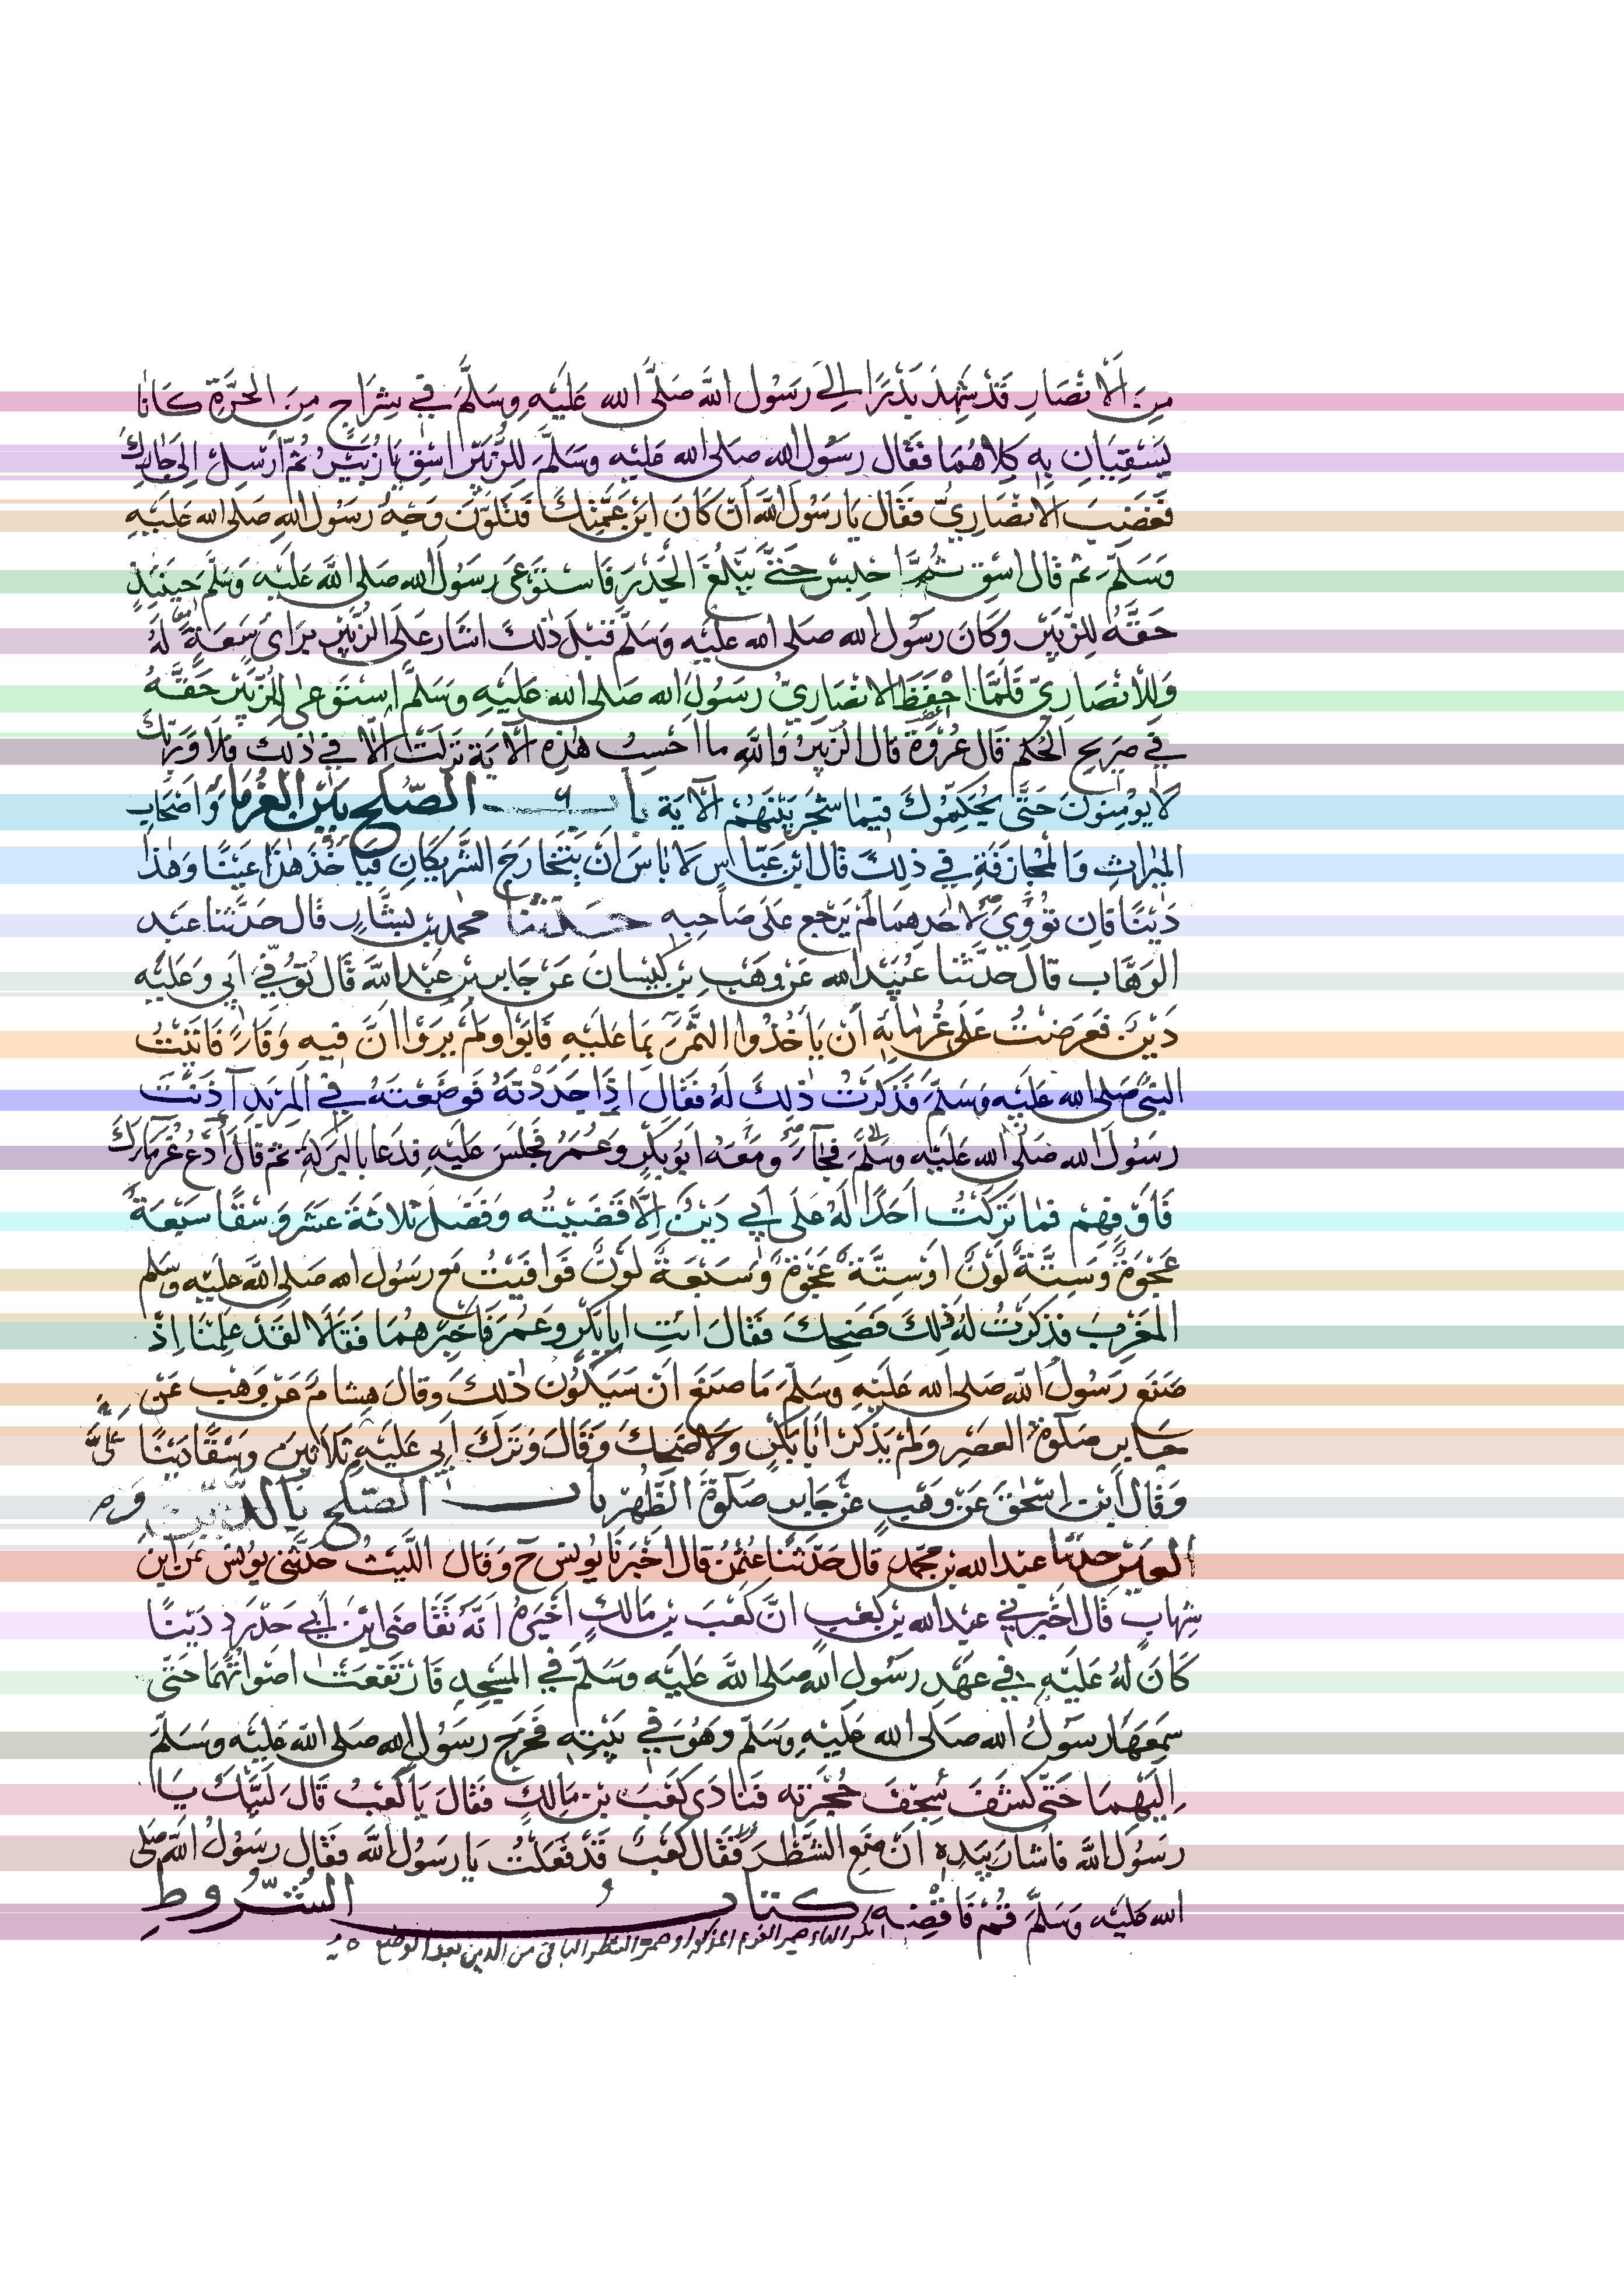 مِنَ الْاَنْصَارِ قَدْ شَهِدَ بَدْرًا اِلَى رَسُولِ اللهِ صَلَّى الله عَلَيْهِ وَسَلَّمَ فِي شِرَاجٍ مِنَ الْحَرَّةِ كَانَا
يَسْقِيَانِ بِهِ كِلَاهُمَا فَقَالَ رَسُولُ الله صلى الله عليه وَسَلَّمَ لِلزُّبَيْرِ اسْقِ يَا زُبَيْرُ ثُمَّ اَرْسِلْ اِلَى جَارِكَ
فَغَضِبَ الانْصَارِيُّ فَقَالَ يَا رَسُولَ اللهِ اَنْ كَانَ ابْنَ عَمَّتِكَ فَتَلَوَّنَ وَجْهُ رَسُولِ اللهِ صلى الله عَلَيْهِ
وَسَلَّمَ ثم قال اسْقِ ثُمَّ احْبِسْ حَتَّى يَبْلُغَ الْجَدْرَ فَاسْتَوْعَى رَسُولُ الله صلى الله عَلَيْه وَسَلَّمَ حِينَئِذٍ
حَقَّهُ لِلزُّبَيْرِ وَكَانَ رَسُولُ الله صلى الله عليه وَسَلَّمَ قَبْلَ ذٰلِكَ اَشَارَ عَلَى الزُّبَيْرِ بِرَايٍ سَعَةٍ لَهُ
وَلِلْاَنْصَارِيِّ فَلَمَّا احْفَظَ الانْصَارِيُّ رَسُولَ الله صلى الله عَلَيْهِ وَسَلَّمَ اسْتَوْعَى لِلزُّبَيْرِ حَقَّهُ
فِي صَرِيحِ الْحُكْمِ قَالَ عُرْوَةُ قَالَ الزُّبَيْرُ وَاللهِ ما اَحْسِبُ هٰذِهِ الْآيَةَ نَزَلَتْ اِلَّا فِي ذٰلِكَ فَلَا وَرَبِّكَ
لَا يُؤْمِنُونَ حَتَّى يُحَكِّمُوكَ فِيمَا شَجَرَ بَيْنَهُمْ الْآيَةَ باب الصُّلْحِ بَيْنَ الْغُرَمَاءِ وَاَصْحَابِ
الْمِيرَاثِ وَالْمُجَازَفَةِ فِي ذٰلِكَ قَالَ ابْنُ عَبَّاسٍ لَا بَاسَ اَنْ يَتَخَارَجَ الشَّرِيكَانِ فَيَاْخُذَ هٰذَا عَيْنًا وَهٰذَا
دَيْنًا فَاِنْ تَوِيَ لِاَحَدِهِمَا لَمْ يَرْجِعْ عَلَى صَاحِبِهِ حَدَّثَنَا محمد بن بَشَّارٍ قَالَ حَدَّثَنَا عَبْد
الْوَهَّابِ قَالَ حَدَّثَنَا عُبَيْدُ الله عَنْ وَهْبِ بْنِ كَيْسَانَ عَنْ جَابِرِ بْنِ عَبْدِ اللهِ قَالَ تُوُفِّيَ اَبِي وَعَلَيْهِ
دَيْنٌ فَعَرَضْتُ عَلَى غُرَمَائِهِ اَنْ يَاْخُذُوا التَّمْرَ بِمَا عَلَيْهِ فَاَبَوْا وَلَمْ يَرَوْا اَنَّ فِيهِ وَفَاءً فَاَتَيْتُ
النَّبِيَّ صلى الله عَلَيْه وَسَلَّمَ فَذَكَرْتُ ذٰلِكَ لَهُ فَقَالَ اِذَا جَدَدْتَهُ فَوَضَعْتَهُ فِي الْمِرْبَدِ آذَنْتَ
رَسُولَ الله صَلَّى الله عَلَيْه وَسَلَّمَ فَجَاءَ وَمَعَهُ اَبُو بَكْرٍ وَعُمَرُ فَجَلَسَ عَلَيْهِ فَدَعَا بِالْبَرَكَةِ ثم قَالَ اُدْعُ غُرَمَاءَكَ
فَاَوْفِهِمْ فَمَا تَرَكْتُ اَحَدًا لَهُ عَلَى اَبِي دَيْنٌ اِلَّا قَضَيْتُه وَفَضَلَ ثَلَاثَةَ عَشَرَ وَسْقًا سَبْعَةٌ
عَجْوَةٌ وَسِتَّةٌ لَوْنٌ اَوْ سِتَّةٌ عَجْوَةٌ وَسَبْعَةٌ لَوْنٌ فَوَافَيْتُ مَعَ رَسُولِ الله صَلَى اللهُ عليه وسلم
الْمَغْرِبَ فَذَكَرْتُ لَهُ ذٰلِكَ فَضَحِكَ فَقَالَ ائْتِ اَبَا بَكْرٍ وَعُمَرَ فَاَخْبِرْهُمَا فَقَالَا لَقَدْ عَلِمْنَا اِذْ
صَنَعَ رَسُولُ اللهِ صَلى الله عَلَيْهِ وَسَلَّمَ مَا صَنَعَ اَنْ سَيَكُونُ ذٰلِكَ وَقَالَ هِشَامٌ عَنْ وَهْبٍ عَنْ
جَابِرٍ صَلٰوةَ الْعَصْرِ وَلَمْ يَذْكُرْ اَبَا بَكْرٍ وَلَا ضَحِكَ وَقَالَ وَتَرَكَ اَبِي عَلَيْهِ ثَلَاثِينَ وَسْقًا دَيْنًا
وَقَالَ ابْنُ اِسْحٰقَ عَنْ وَهْبٍ عَنْ جَابِرٍ صَلٰوةَ الظُّهْرِ باب الصُّلْحِ بِالدَّيْنِ وَ
العين حدثنا عبد الله بن محمد قَالَ حَدَّثَنَا عُثْمٰنُ قَالَ اَخْبَرَنَا يُونُسُ ح وَقَالَ اللَّيْثُ حَدَّثَنِي يُونُسُ عَنِ ابْنِ
شِهَابٍ قَالَ اَخْبَرَنِي عَبْدُ الله بْنُ كَعْبٍ اَنَّ كَعْبَ بْنَ مَالِكٍ اَخْبَرَهُ اَنَّهُ تَقَاضَى ابْنَ اَبِي حَدْرَدٍ دَيْنًا
كَانَ لَهُ عَلَيْهِ فِي عَهْدِ رَسُولِ الله صلى اللهُ عَلَيْه وَسَلَّمَ فِي الْمَسْجِدِ فَارْتَفَعَتْ اَصْوَاتُهُمَا حَتَّى
سَمِعَهَا رَسُولُ الله صَلَى الله عَلَيْهِ وَسَلَّمَ وَهُوَ فِي بَيْتِهِ فَخَرَجَ رَسُولُ الله صلى الله عَلَيْهِ وَسَلَّمَ
اِلَيْهِمَا حَتَّى كَشَفَ سِجْفَ حُجْرَتِهِ فَنَادَى كَعْبَ بْنَ مَالِكٍ فَقَالَ يَا كَعْبُ قَالَ لَبَّيْكَ يَا
رَسُولَ اللهِ فَاَشَارَ بِيَدِهِ اَنْ ضَعِ الشَّطْرَ فَقَالَ كَعْبٌ قَدْ فَعَلْتُ يَا رَسُولَ اللهِ فَقَالَ رَسُولُ اللهِ صَلى
الله عَلَيْه وَسَلَّمَ قُمْ فَاقْضِهِ كتاب الشروط
الشطر الباقى من الدين بعد الوضع